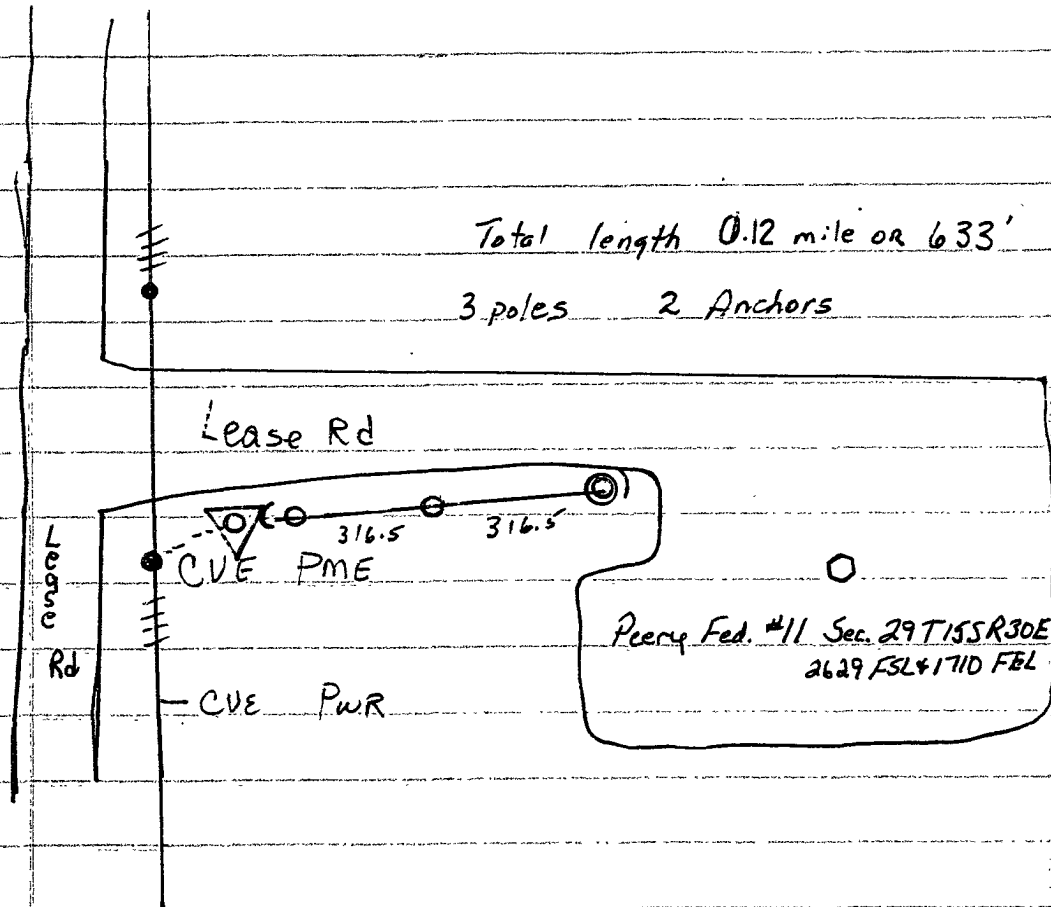 Total length 0.12 mile or 633'
3 poles 2 Anchors
Lease Rd
316.5 316.5
CVE PME
Lease Rd
Peery Fed. #11 Sec. 29 T15S R30E
2629 FSL & 1710 FEL
CVE PWR